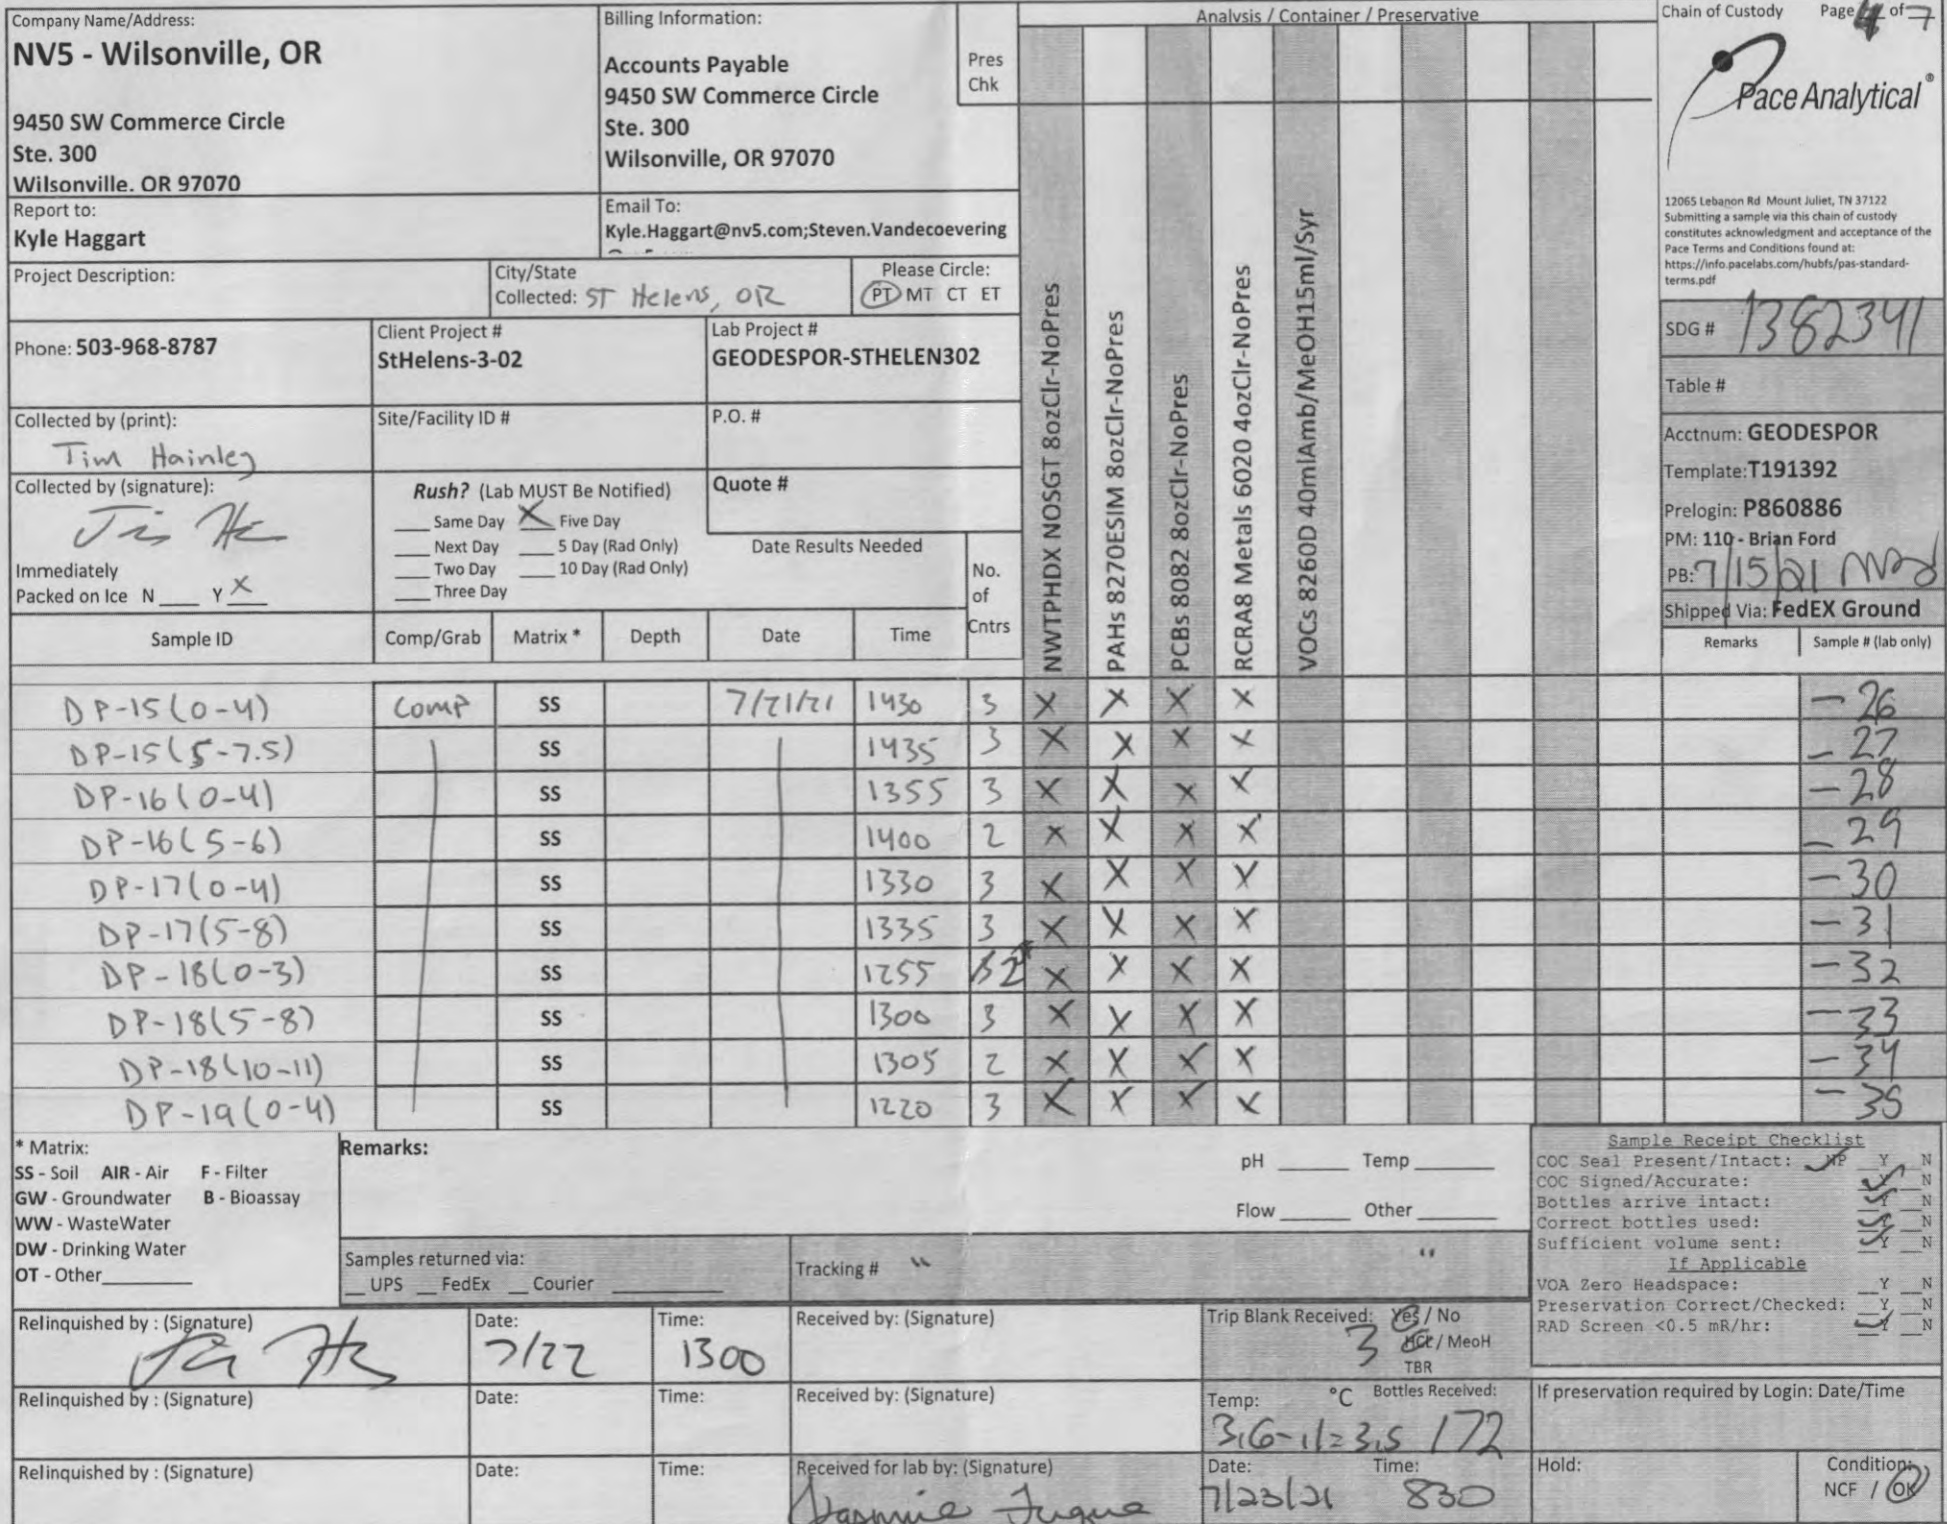 Company Name/Address:
NV5 - Wilsonville, OR
9450 SW Commerce Circle
Ste. 300
Wilsonville, OR 97070
Billing Information:
Accounts Payable
9450 SW Commerce Circle
Ste. 300
Wilsonville, OR 97070
Pres
Chk
Analysis / Container / Preservative
Chain of Custody Page 4 of 7
Pace Analytical®
12065 Lebanon Rd Mount Juliet, TN 37122
Submitting a sample via this chain of custody
constitutes acknowledgment and acceptance of the
Pace Terms and Conditions found at:
https://info.pacelabs.com/hubfs/pas-standard-
terms.pdf
Report to:
Kyle Haggart
Email To:
Kyle.Haggart@nv5.com;Steven.Vandecoevering
Project Description:
City/State
Collected: ST Helens, OR
Please Circle:
PT MT CT ET
Phone: 503-968-8787
Client Project #
StHelens-3-02
Lab Project #
GEODESPOR-STHELEN302
Collected by (print):
Tim Hainley
Site/Facility ID #
P.O. #
Collected by (signature):
Rush? (Lab MUST Be Notified)
Same Day X Five Day
Next Day 5 Day (Rad Only)
Two Day 10 Day (Rad Only)
Three Day
Quote #
Date Results Needed
Immediately
Packed on Ice N ___ Y X
No.
of
Cntrs
NWTPHDX NOSGT 8ozClr-NoPres
PAHs 8270ESIM 8ozClr-NoPres
PCBs 8082 8ozClr-NoPres
RCRA8 Metals 6020 4ozClr-NoPres
VOCs 8260D 40mlAmb/MeOH15ml/Syr
SDG # 1382341
Table #
Acctnum: GEODESPOR
Template:T191392
Prelogin: P860886
PM: 110 - Brian Ford
PB: 7/15/21
Shipped Via: FedEX Ground
Sample ID Comp/Grab Matrix * Depth Date Time Remarks Sample # (lab only)
DP-15(0-4) Comp SS 7/21/21 1430 3 X X X X -26
DP-15(5-7.5) SS 1435 3 X X X X -27
DP-16(0-4) SS 1355 3 X X X X -28
DP-16(5-6) SS 1400 2 X X X X -29
DP-17(0-4) SS 1330 3 X X X X -30
DP-17(5-8) SS 1335 3 X X X X -31
DP-18(0-3) SS 1255 2 X X X X -32
DP-18(5-8) SS 1300 3 X X X X -33
DP-18(10-11) SS 1305 2 X X X X -34
DP-19(0-4) SS 1220 3 X X X X -35
* Matrix:
SS - Soil AIR - Air F - Filter
GW - Groundwater B - Bioassay
WW - WasteWater
DW - Drinking Water
OT - Other
Remarks:
pH ___ Temp ___
Flow ___ Other ___
Samples returned via:
__ UPS __ FedEx __ Courier
Tracking # " "
Sample Receipt Checklist
COC Seal Present/Intact: NP Y N
COC Signed/Accurate: Y N
Bottles arrive intact: Y N
Correct bottles used: Y N
Sufficient volume sent: Y N
If Applicable
VOA Zero Headspace: Y N
Preservation Correct/Checked: Y N
RAD Screen <0.5 mR/hr: Y N
Relinquished by : (Signature)
Date:
7/22
Time:
1300
Received by: (Signature)
Trip Blank Received: Yes / No
3 HCL / MeoH
TBR
Relinquished by : (Signature)
Date:
Time:
Received by: (Signature)
Temp: °C Bottles Received:
3.6-.1=3.5 172
If preservation required by Login: Date/Time
Relinquished by : (Signature)
Date:
Time:
Received for lab by: (Signature)
Date: Time:
7/23/21 830
Hold:
Condition:
NCF / OK